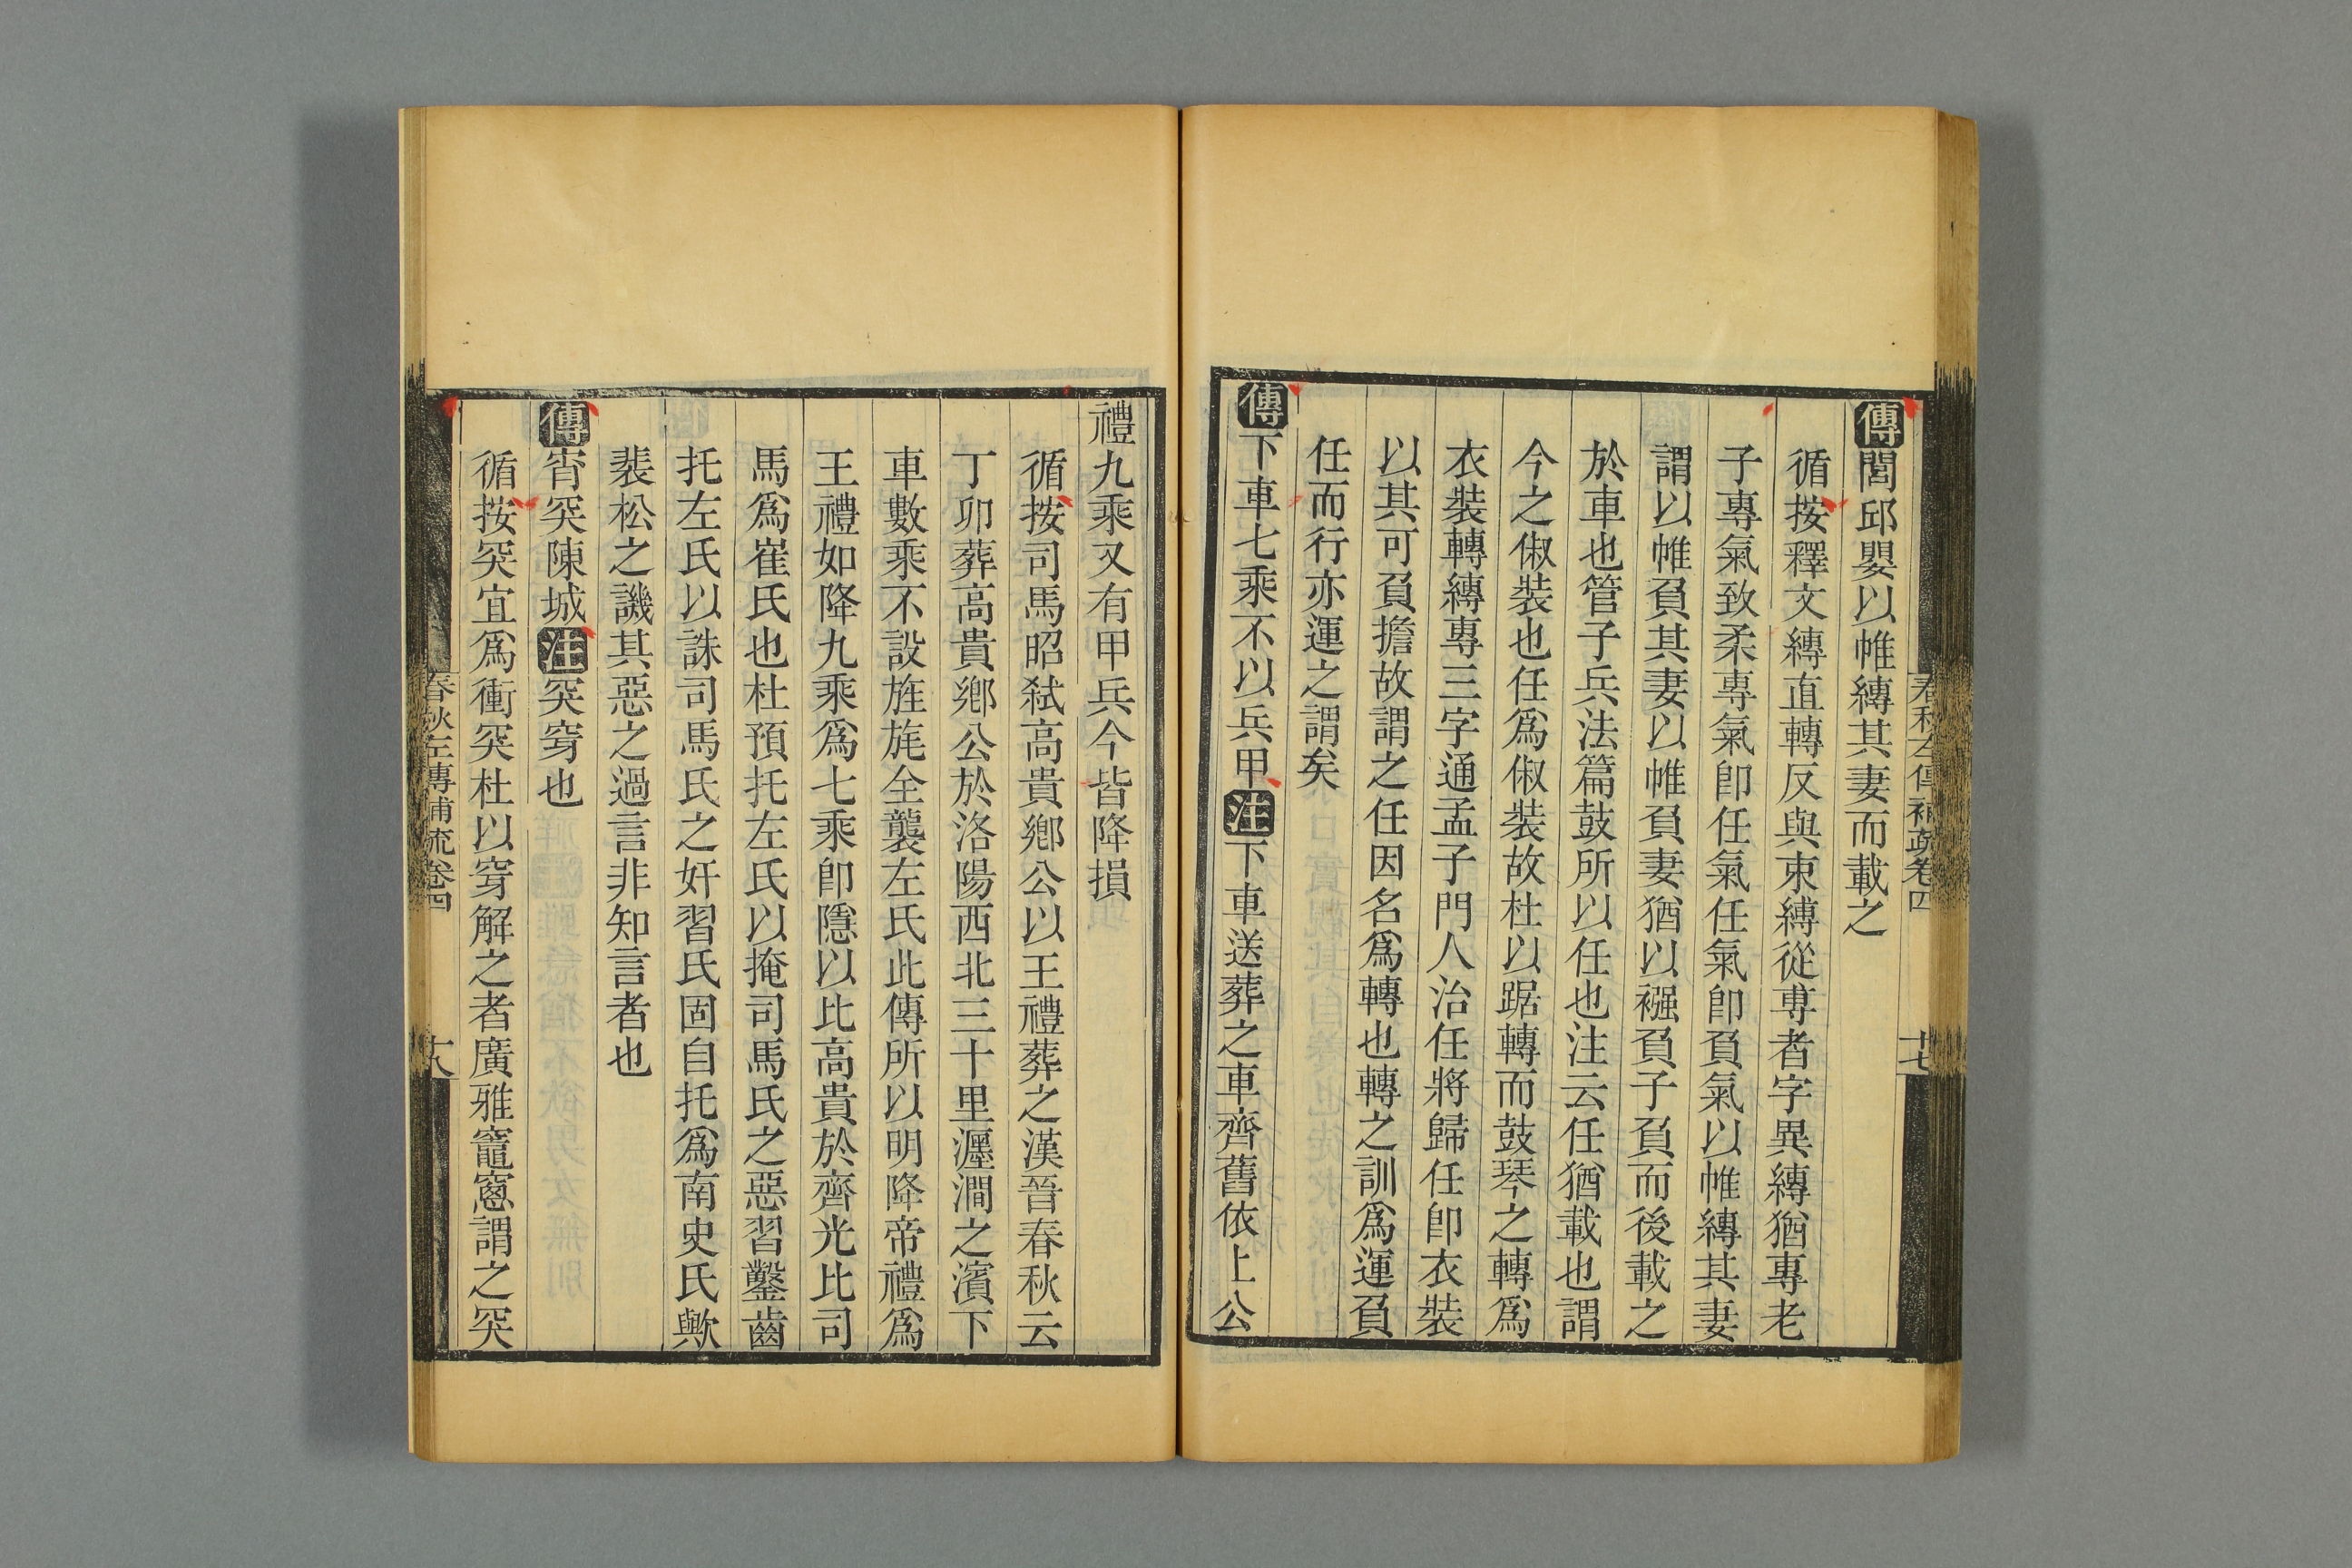 春秋左傳補疏卷四
十七
傳閭邱嬰以帷縳其妻而載之
循按釋文縳直轉反與束縛從尃者字異縳猶專老
子專氣致柔專氣卽任氣任氣卽負氣以帷縳其妻
謂以帷負其妻以帷負妻猶以襁負子負而後載之
於車也管子兵法篇鼓所以任也注云任猶載也謂
今之俶裝也任爲俶裝故杜以踞轉而鼓琴之轉爲
衣裝轉縳專三字通孟子門人治任將歸任卽衣裝
以其可負擔故謂之任因名爲轉也轉之訓爲運負
任而行亦運之謂矣
傳下車七乘不以兵甲注下車送葬之車齊舊依上公
禮九乘又有甲兵今皆降損
循按司馬昭弑高貴鄉公以王禮葬之漢晉春秋云
丁卯葬高貴鄉公於洛陽西北三十里瀍澗之濱下
車數乘不設旌旄全襲左氏此傳所以明降帝禮爲
王禮如降九乘爲七乘卽隱以比高貴於齊光比司
馬爲崔氏也杜預托左氏以掩司馬氏之惡習鑿齒
托左氏以誅司馬氏之奸習氏固自托爲南史氏歟
裴松之譏其惡之過言非知言者也
傳宵突陳城注突穿也
循按突宜爲衝突杜以穿解之者廣雅竈窻謂之突
春秋左傳補疏卷四
十八